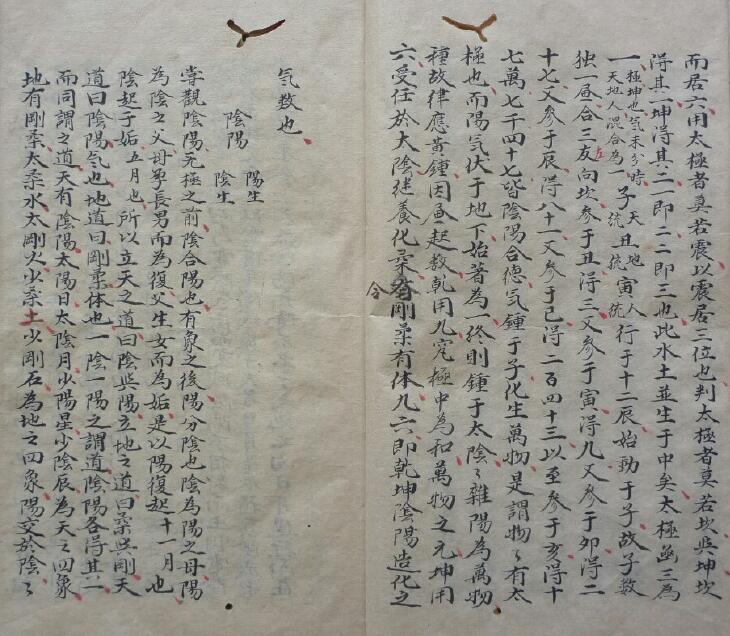 而居六用太極者莫若震以震居三位也判太極者莫若坎與坤坎
得其一坤得其二一即二二即三也此水土並生于中矣太極函三為
一極坤也气未分時天地人混合為一子天統丑地統寅人統行于十二辰始動于子故子數
独一昼合三友向左坎参于丑得三又参于寅得九又参于卯得二
十七又参于辰得八十一又参于巳得二百四十三以至参于亥得十
七萬七千四十七皆陰陽合德气鍾于子化生萬物是謂物〻有太
極也而陽气伏于地下始著為一終則鍾于太陰〻雜陽為萬物
種故律應黄鍾因而起数乾用九究極中為和萬物之元坤用
六受任於太陰継養化柔分剛柔有体九六即乾坤陰陽造化之
气数也
陰陽 陽生 陰生
嘗觀陰陽无極之前陰合陽也有象之後陽分陰也陰為陽之母陽
為陰之父母孕長男而為復父生女而為姤是以陽復起十一月也
陰起于姤五月也所以立天之道曰陰與陽立地之道曰柔與剛天
道曰陰陽气也地道曰剛柔体也一陰一陽之謂道陰陽各得其一
而同謂之道天有陰陽太陽日太陰月少陽星少陰辰為天之四象
地有剛柔太柔水太剛火少柔土少剛石為地之四象陽交於陰〻